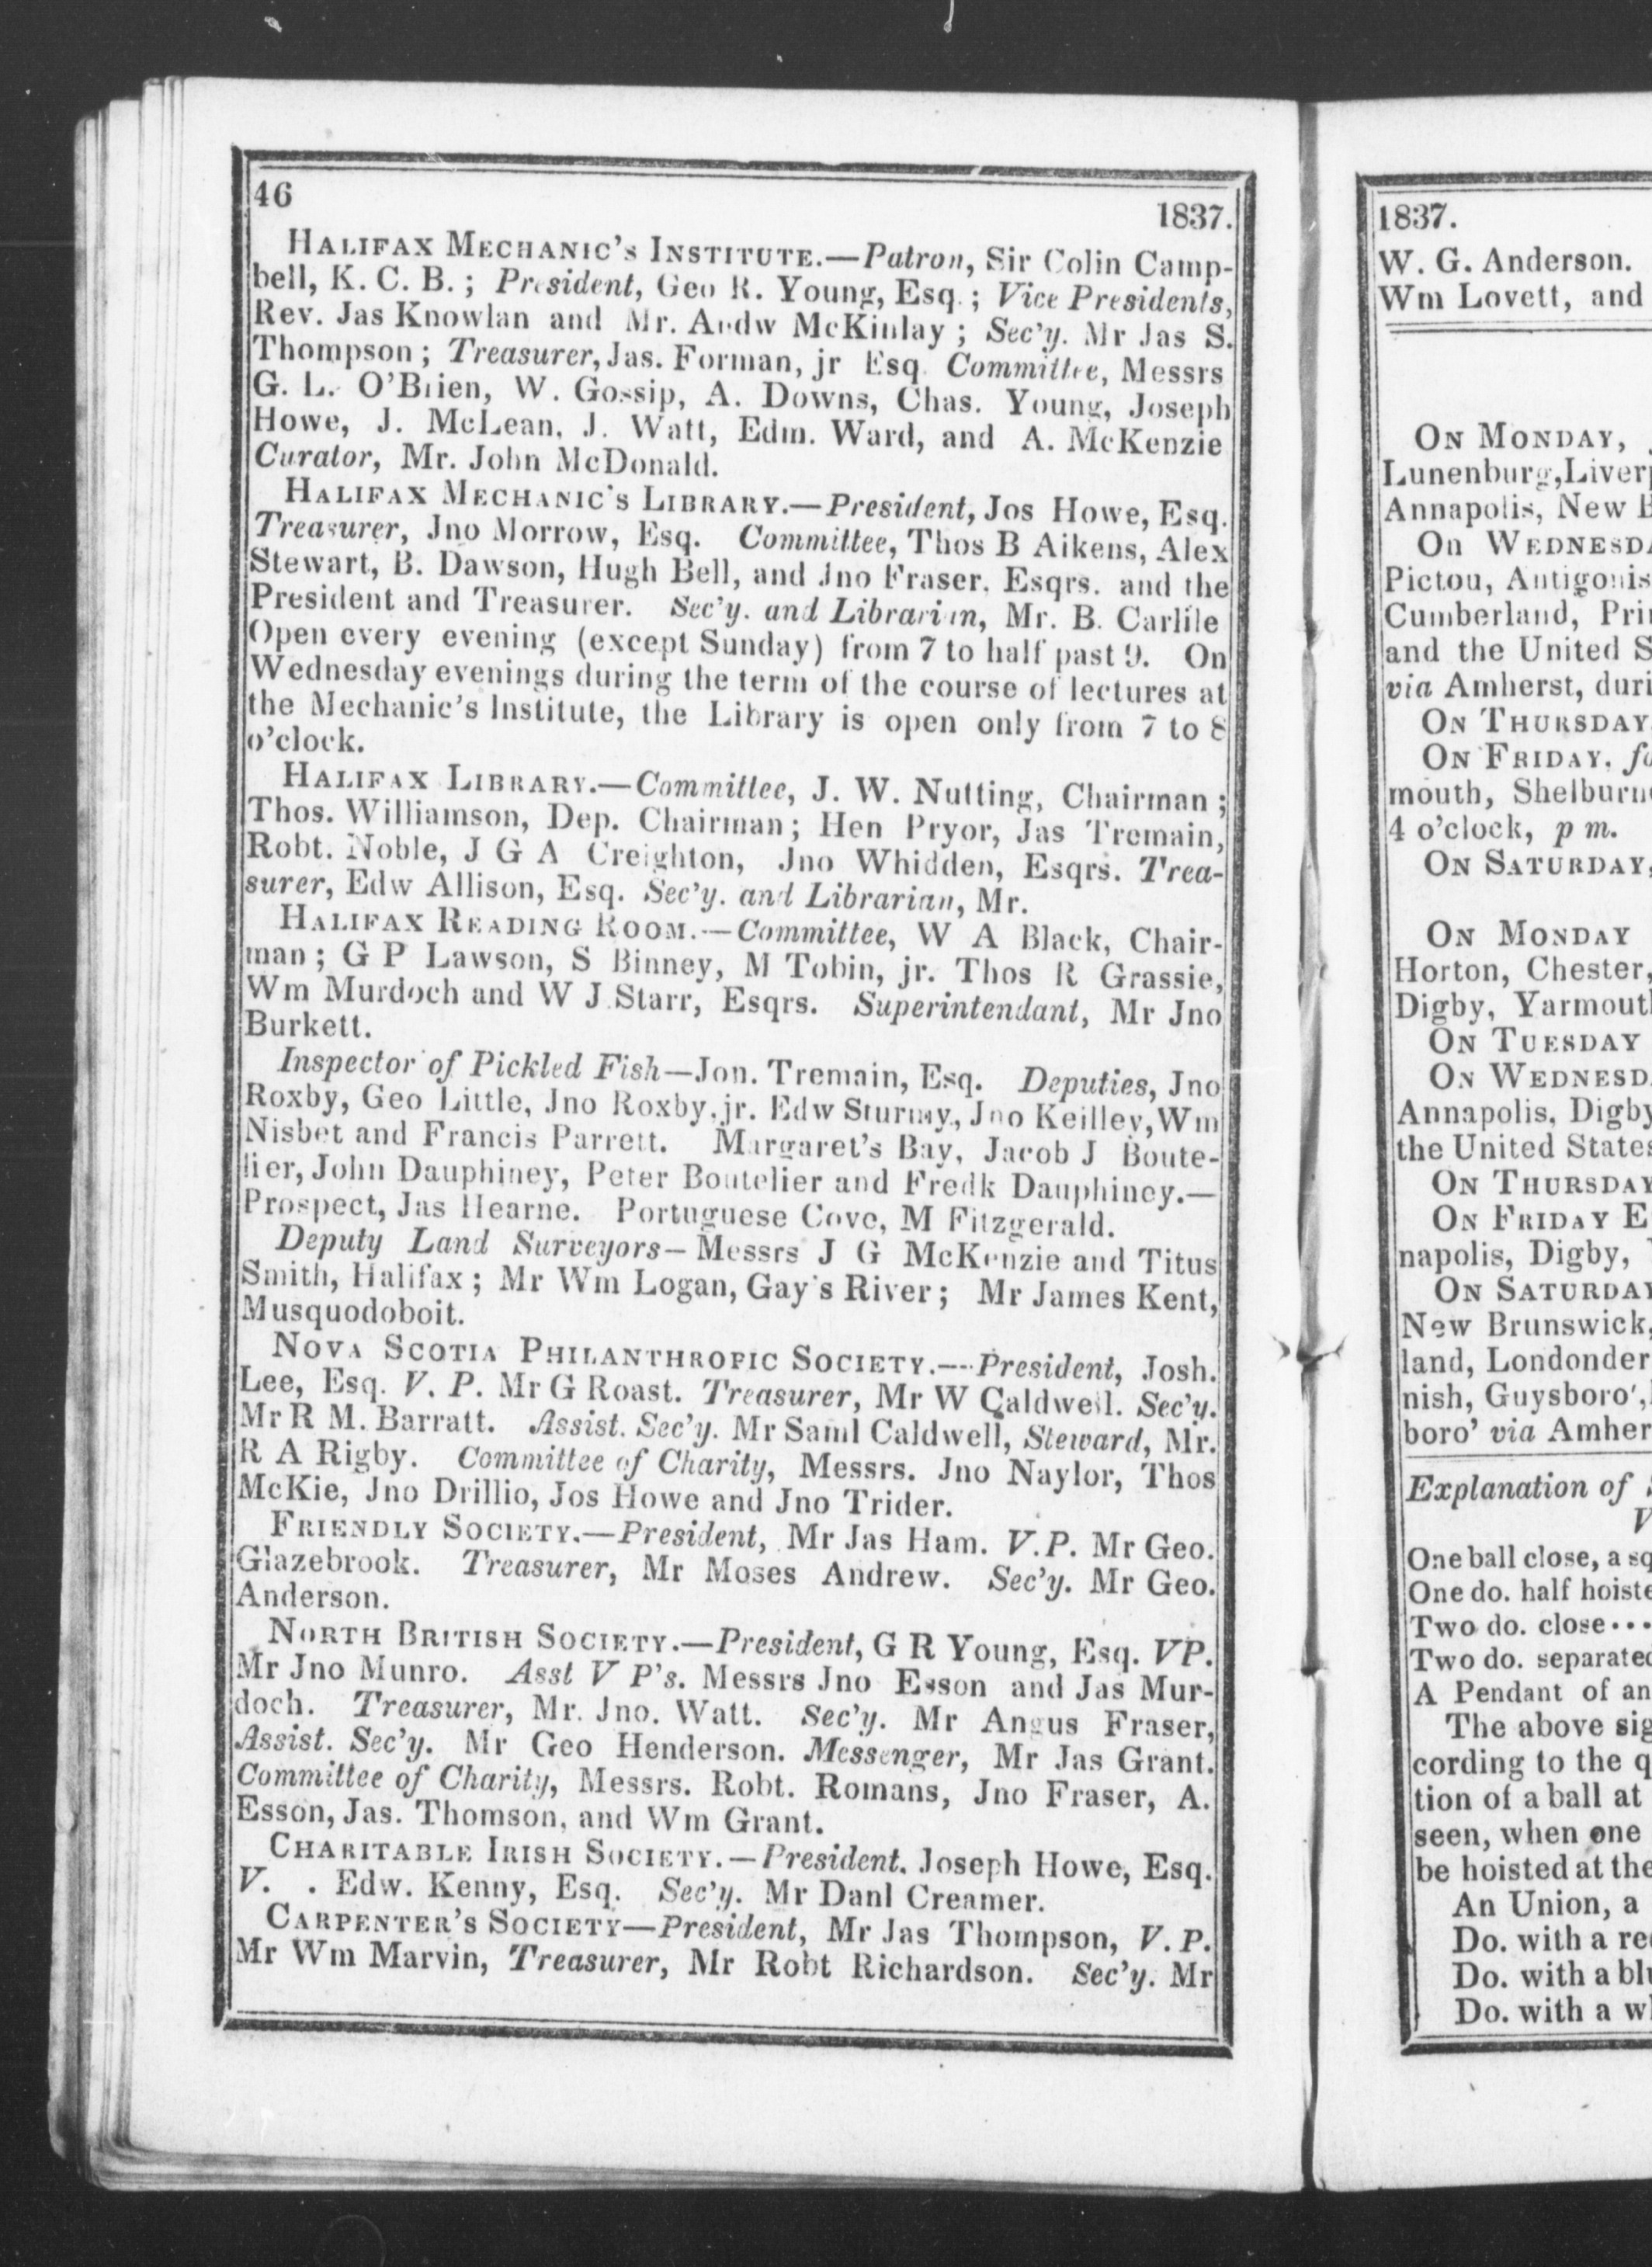 46
1837.
HALIFAX MECHANIC'S INSTITUTE.—Patron, Sir Colin Camp-
bell, K. C. B. ; President, Geo R. Young, Esq. ; Vice Presidents,
Rev. Jas Knowlan and Mr. Andw McKinlay ; Sec'y. Mr Jas S.
Thompson ; Treasurer, Jas. Forman, jr Esq. Committee, Messrs
G. L. O'Brien, W. Gossip, A. Downs, Chas. Young, Joseph
Howe, J. McLean, J. Watt, Edm. Ward, and A. McKenzie
Curator, Mr. John McDonald.
HALIFAX MECHANIC'S LIBRARY.—President, Jos Howe, Esq.
Treasurer, Jno Morrow, Esq. Committee, Thos B Aikens, Alex
Stewart, B. Dawson, Hugh Bell, and Jno Fraser, Esqrs. and the
President and Treasurer. Sec'y. and Librarian, Mr. B. Carlile
Open every evening (except Sunday) from 7 to half past 9. On
Wednesday evenings during the term of the course of lectures at
the Mechanic's Institute, the Library is open only from 7 to 8
o'clock.
HALIFAX LIBRARY.—Committee, J. W. Nutting, Chairman ;
Thos. Williamson, Dep. Chairman ; Hen Pryor, Jas Tremain,
Robt. Noble, J G A Creighton, Jno Whidden, Esqrs. Trea-
surer, Edw Allison, Esq. Sec'y. and Librarian, Mr.
HALIFAX READING ROOM.—Committee, W A Black, Chair-
man ; G P Lawson, S Binney, M Tobin, jr. Thos R Grassie,
Wm Murdoch and W J Starr, Esqrs. Superintendant, Mr Jno
Burkett.
Inspector of Pickled Fish—Jon. Tremain, Esq. Deputies, Jno
Roxby, Geo Little, Jno Roxby, jr. Edw Sturmy, Jno Keilley, Wm
Nisbet and Francis Parrett. Margaret's Bay, Jacob J Boute-
lier, John Dauphiney, Peter Boutelier and Fredk Dauphiney.—
Prospect, Jas Hearne. Portuguese Cove, M Fitzgerald.
Deputy Land Surveyors—Messrs J G McKenzie and Titus
Smith, Halifax ; Mr Wm Logan, Gay's River ; Mr James Kent,
Musquodoboit.
NOVA SCOTIA PHILANTHROPIC SOCIETY.—President, Josh.
Lee, Esq. V. P. Mr G Roast. Treasurer, Mr W Caldwell. Sec'y.
Mr R M. Barratt. Assist. Sec'y. Mr Saml Caldwell, Steward, Mr.
R A Rigby. Committee of Charity, Messrs. Jno Naylor, Thos
McKie, Jno Drillio, Jos Howe and Jno Trider.
FRIENDLY SOCIETY.—President, Mr Jas Ham. V.P. Mr Geo.
Glazebrook. Treasurer, Mr Moses Andrew. Sec'y. Mr Geo.
Anderson.
NORTH BRITISH SOCIETY.—President, G R Young, Esq. VP.
Mr Jno Munro. Asst V P's. Messrs Jno Esson and Jas Mur-
doch. Treasurer, Mr. Jno. Watt. Sec'y. Mr Angus Fraser,
Assist. Sec'y. Mr Geo Henderson. Messenger, Mr Jas Grant.
Committee of Charity, Messrs. Robt. Romans, Jno Fraser, A.
Esson, Jas. Thomson, and Wm Grant.
CHARITABLE IRISH SOCIETY.—President. Joseph Howe, Esq.
V. . Edw. Kenny, Esq. Sec'y. Mr Danl Creamer.
CARPENTER'S SOCIETY—President, Mr Jas Thompson, V. P.
Mr Wm Marvin, Treasurer, Mr Robt Richardson. Sec'y. Mr
1837.
W. G. Anderson.
Wm Lovett, and
ON MONDAY,
Lunenburg, Liverp
Annapolis, New B
On WEDNESDA
Pictou, Antigonis
Cumberland, Prin
and the United S
via Amherst, duri
ON THURSDAY
ON FRIDAY, fo
mouth, Shelburne
4 o'clock, p m.
ON SATURDAY,
ON MONDAY
Horton, Chester,
Digby, Yarmouth
ON TUESDAY
ON WEDNESD
Annapolis, Digby
the United States
ON THURSDAY
ON FRIDAY E
napolis, Digby,
ON SATURDAY
New Brunswick,
land, Londonder
nish, Guysboro',
boro' via Amher
Explanation of S
V
One ball close, a sq
One do. half hoiste
Two do. close···
Two do. separated
A Pendant of an
The above sig
cording to the q
tion of a ball at
seen, when one
be hoisted at the
An Union, a
Do. with a re
Do. with a blu
Do. with a wh